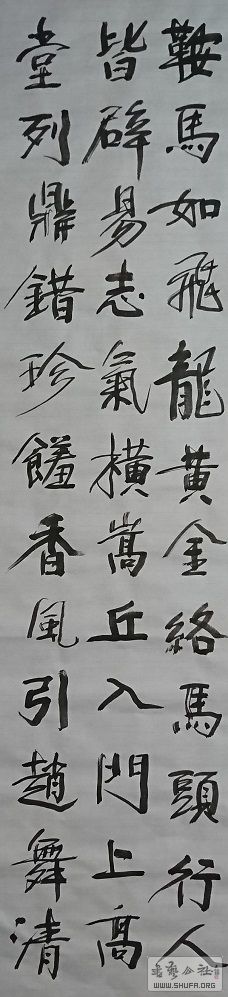 鞍馬如飛龍黃金絡馬頭行人
皆辟易志氣橫嵩丘入門上高
堂列鼎錯珍饈香風引趙舞清
WWW.SHUFA.ORG